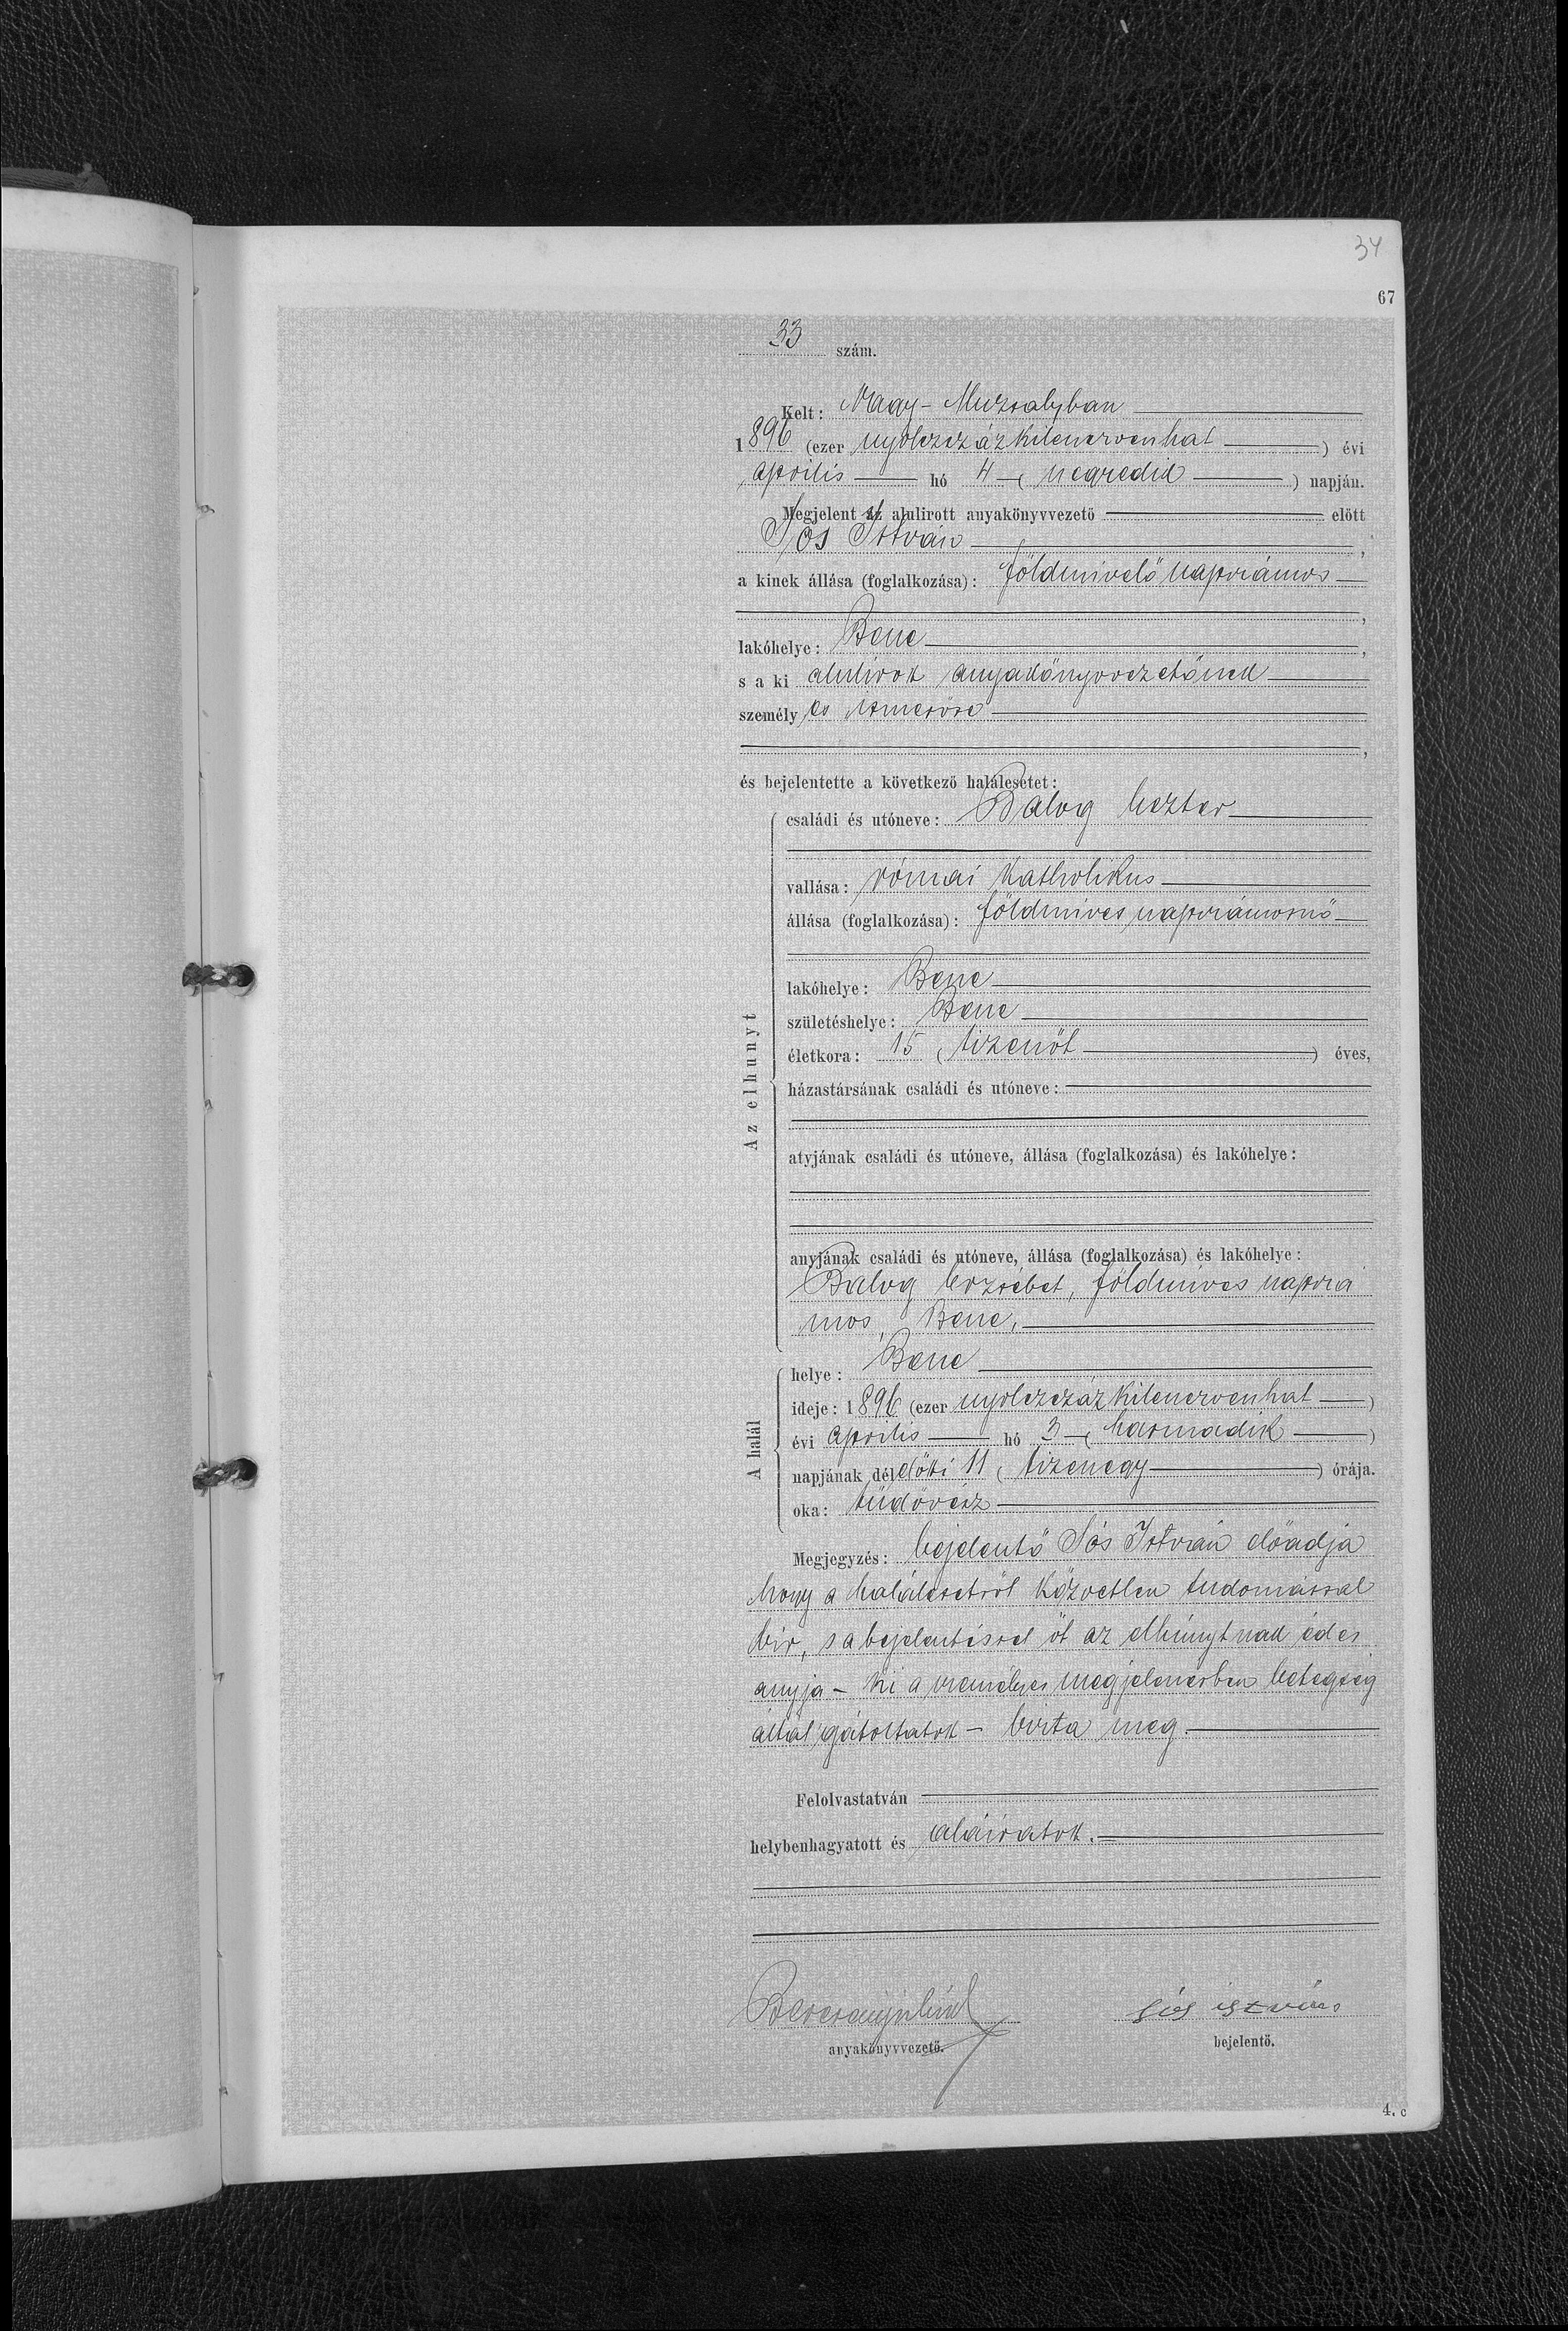 34
67
33 szám.
Kelt: Nagy-Muzsalyban
1896 (ezer nyolczszázkilenczvenhat) évi
április hó 4 (negyedik) napján.
Megjelent az alulirott anyakönyvvezető előtt
Sós István,
a kinek állása (foglalkozása): földmivelő napszámos
,
lakóhelye: Bene,
s a ki alulirott anyakönyvvezetőnek
személyes ismerőse
,
és bejelentette a következő halálesetet:
családi és utóneve: Balog Eszter
vallása: római katholikus
állása (foglalkozása): földmives napszámosnő
lakóhelye: Bene
születéshelye: Bene
életkora: 15 (tizenöt) éves,
házastársának családi és utóneve:
Az elhunyt
atyjának családi és utóneve, állása (foglalkozása) és lakóhelye:
anyjának családi és utóneve, állása (foglalkozása) és lakóhelye:
Balog Erzsébet, földmives napszá
mos, Bene,
helye: Bene
ideje: 1896 (ezer nyolczszázkilenczvenhat)
évi április hó 3 (harmadik)
A halál
napjának délelőtti 11 (tizenegy) órája.
oka: tüdővész
Megjegyzés: bejelentő Sós István előadja
hogy a halálesetről közvetlen tudomással
bir, s a bejelentéssel őt az elhúnytnak édes
anyja – ki a személyes megjelenésben betegség
által gátoltatott – bizta meg.
Felolvastatván
helybenhagyatott és aláiratott.
anyakönyvvezető.
sós istván
bejelentő.
4. c